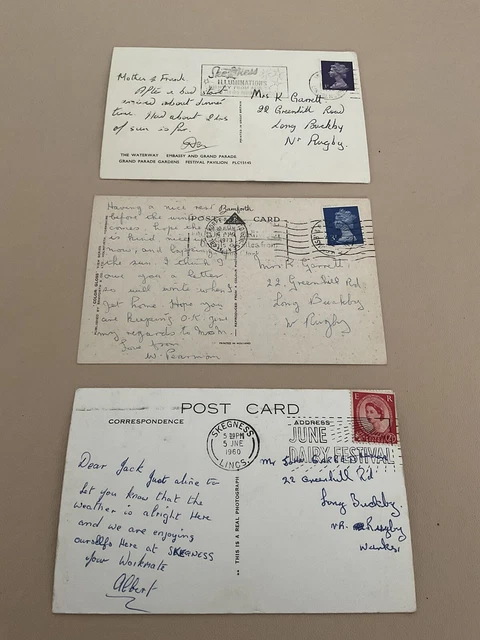 Skegness
ILLUMINATIONS
Mother & Frank.
After a bad start
arrived about dinner
time. Had about 2 hrs
of sun so far.
Mrs K Garrett
22 Greenhill Road
Long Buckby
Nr Rugby.
THE WATERWAY EMBASSY AND GRAND PARADE.
GRAND PARADE GARDENS FESTIVAL PAVILION PLC15145
Having a nice rest
before the
comes. hope the
is kind, nice
now, and
the sun I think I
owe you a letter
so will write when I
get home. Hope you
are keeping O.K give
my regards to
Love from
W. Pearman
Bamforth
POST CARD
1973
Mrs R. Garrett.
22, Greenhill Rd
Long Buckby
Nr Rugby
POST CARD
CORRESPONDENCE
ADDRESS
SKEGNESS
5 30PM
5 JNE
1960
LINCS.
JUNE
DAIRY FESTIVAL
E R
Dear Jack Just a line to
let you know that the
weather is alright Here
and we are enjoying
ourselfs Here at SKEGNESS
your Workmate
Albert
"THIS IS A REAL PHOTOGRAPH"
Mr
22 Greenhill Rd
Long Buckby.
NR. Rugby